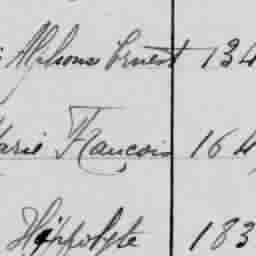 Alphonse Ernest 134
Marie Francois 164
Hippolyte 183